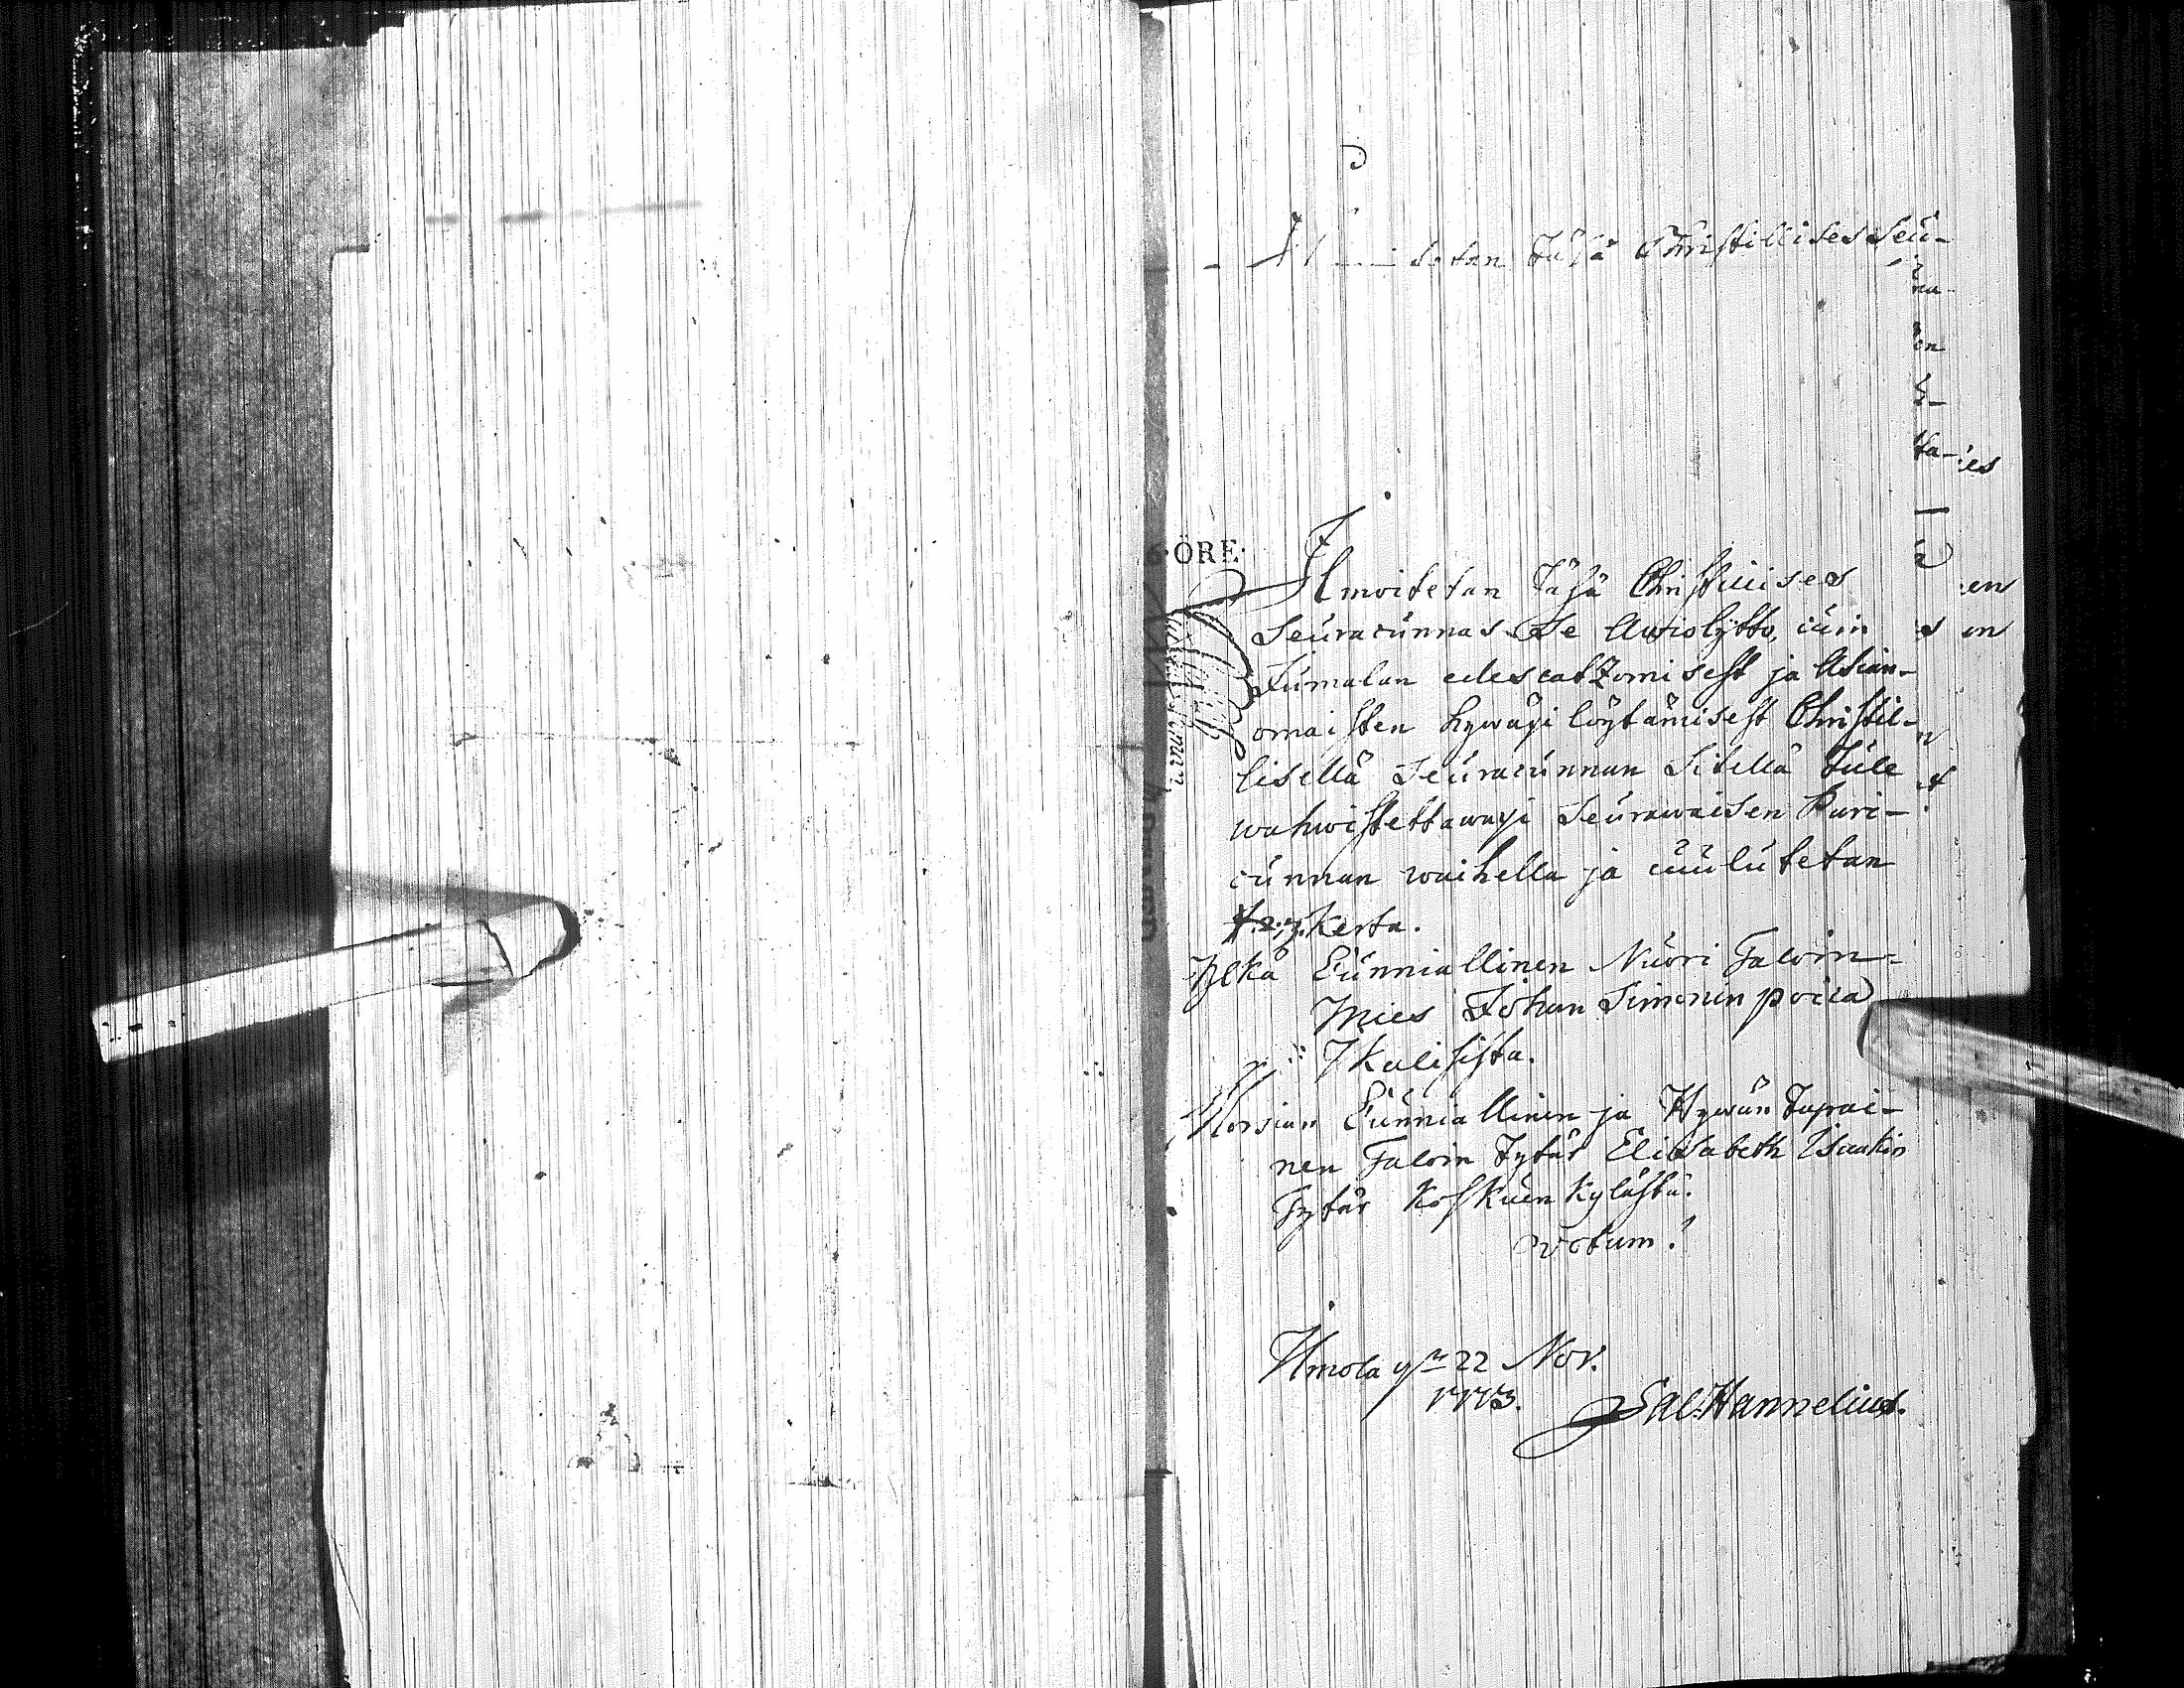 Täsä Christillises Seu-
ra-
en
ta-
es
6·ÖRE·
Ilmoitetan Täsä Christillises
Seuracunnas Se Awiolijtto, cuin
Jumalan edescatzomisest ja Asian-
omaisten hywäxi löytämisest Christil-
lisellä Seuracunnan Sitellä tule
wahwistettawaxi Seurawaisen Pari-
cunnan waihella ja cuulutetan
1. 2. 3. Kerta.
Ylkä Cunniallinen Nuori Taloin-
Mies Johan Simonin poica
Ikalisista.
Morsian Cunniallinen ja Hywän Tapai-
nen Taloin Tytär Elisabeth Isaakin
Tytär Koskuen Kylästä.
Votum!
Ilmola 22 Nov.
1773. Sal: Hannelius.